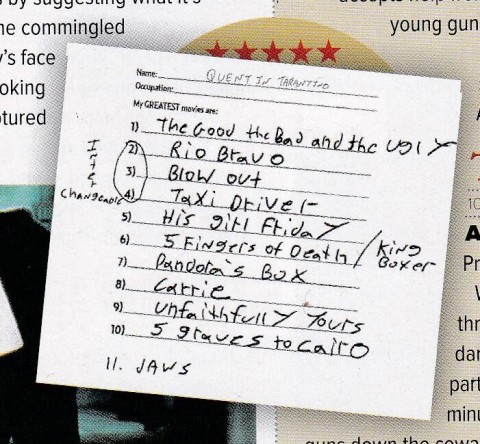 by suggesting what it's
the commingled
y's face
oking
otured
young gun
Name: QUENTIN TARANTINO
Occupation:
My GREATEST movies are:
1) The Good the Bad and the Ugly
2) Rio Bravo
3) Blow out
4) Taxi Driver
Interchangeable
5) His girl Friday
6) 5 Fingers of Death / King Boxer
7) Pandora's Box
8) Carrie
9) unfaithfully Yours
10) 5 graves to Cairo
11. JAWS
10
A
Pr
thr
dar
part
minu